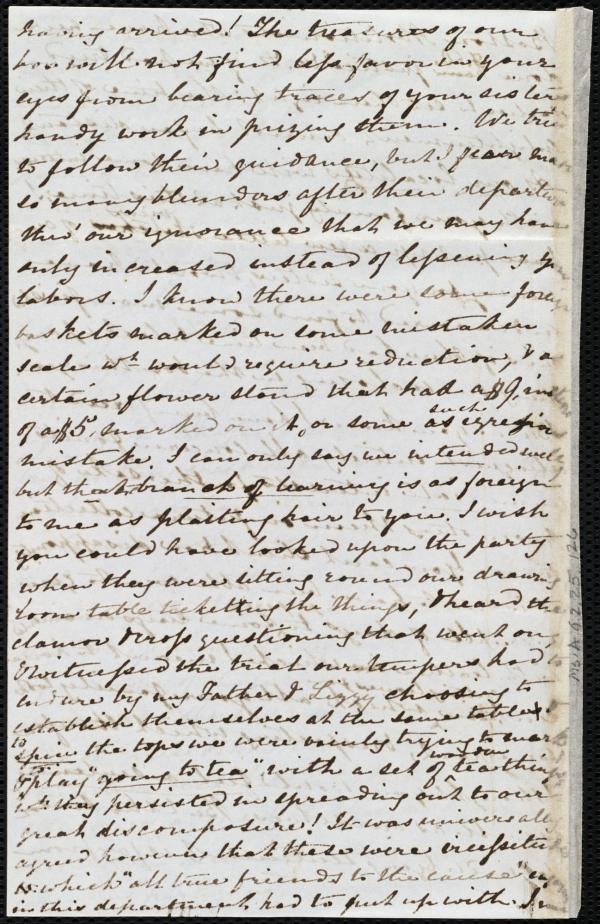 having arrived! The treasures of our
box will not find less favor in your
eyes from bearing traces of your sister
handy work in prizing them. We tried
to follow their guidance, but I fear made
so many blunders after their departure
thro' our ignorance that we may have
only increased instead of lessening your
labors. I know there were some foreign
baskets marked on some mistaken
scale wh. would require reduction, & a
certain flower stand that had a $9, instead
of a $5, marked on it, or some such egregious
mistake. I can only say we intended well
but that branch of learning is as foreign
to me as plaiting hair to you. I wish
you could have looked upon the party
when they were sitting round our drawing
room table ticketting the things, & heard the
clamor & cross questioning that went on,
& witnessed the trial our tempers had to
endure by my Father & Lizzy choosing to
establish themselves at the same table
to spin the tops we were vainly trying to mark
& "play" going to tea" with a set of wooden tea things
wh. they persisted in spreading out to our
great discomposure! It was universally
agreed however that these were vicissitudes
to which "all true friends to the cause"
in this department had to put up with.
Ms. A. 9. 2. 25, 126